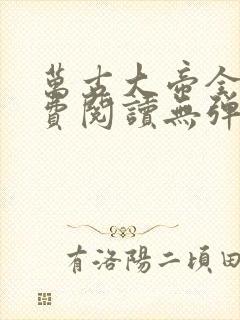 萬古大帝全
費閱讀無彈
有洛陽二頃田